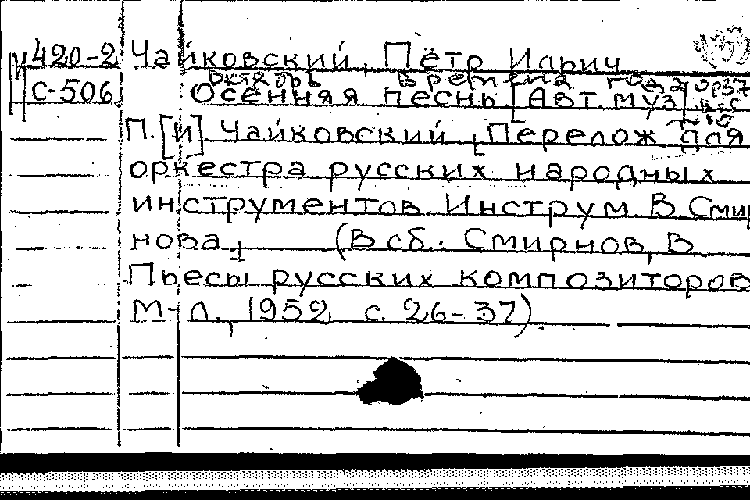 М420-2 Чайковский, Пётр Ильич
С-506 Октябрь Времена года ор37
Осенняя песнь [Авт. муз.]
П. [И]. Чайковский, [Перелож для
оркестра русских народных
инструментов Инструм В Смир
нова] (В сб.: Смирнов, В
Пьесы русских композиторов
М-Л., 1952 с. 26-37).